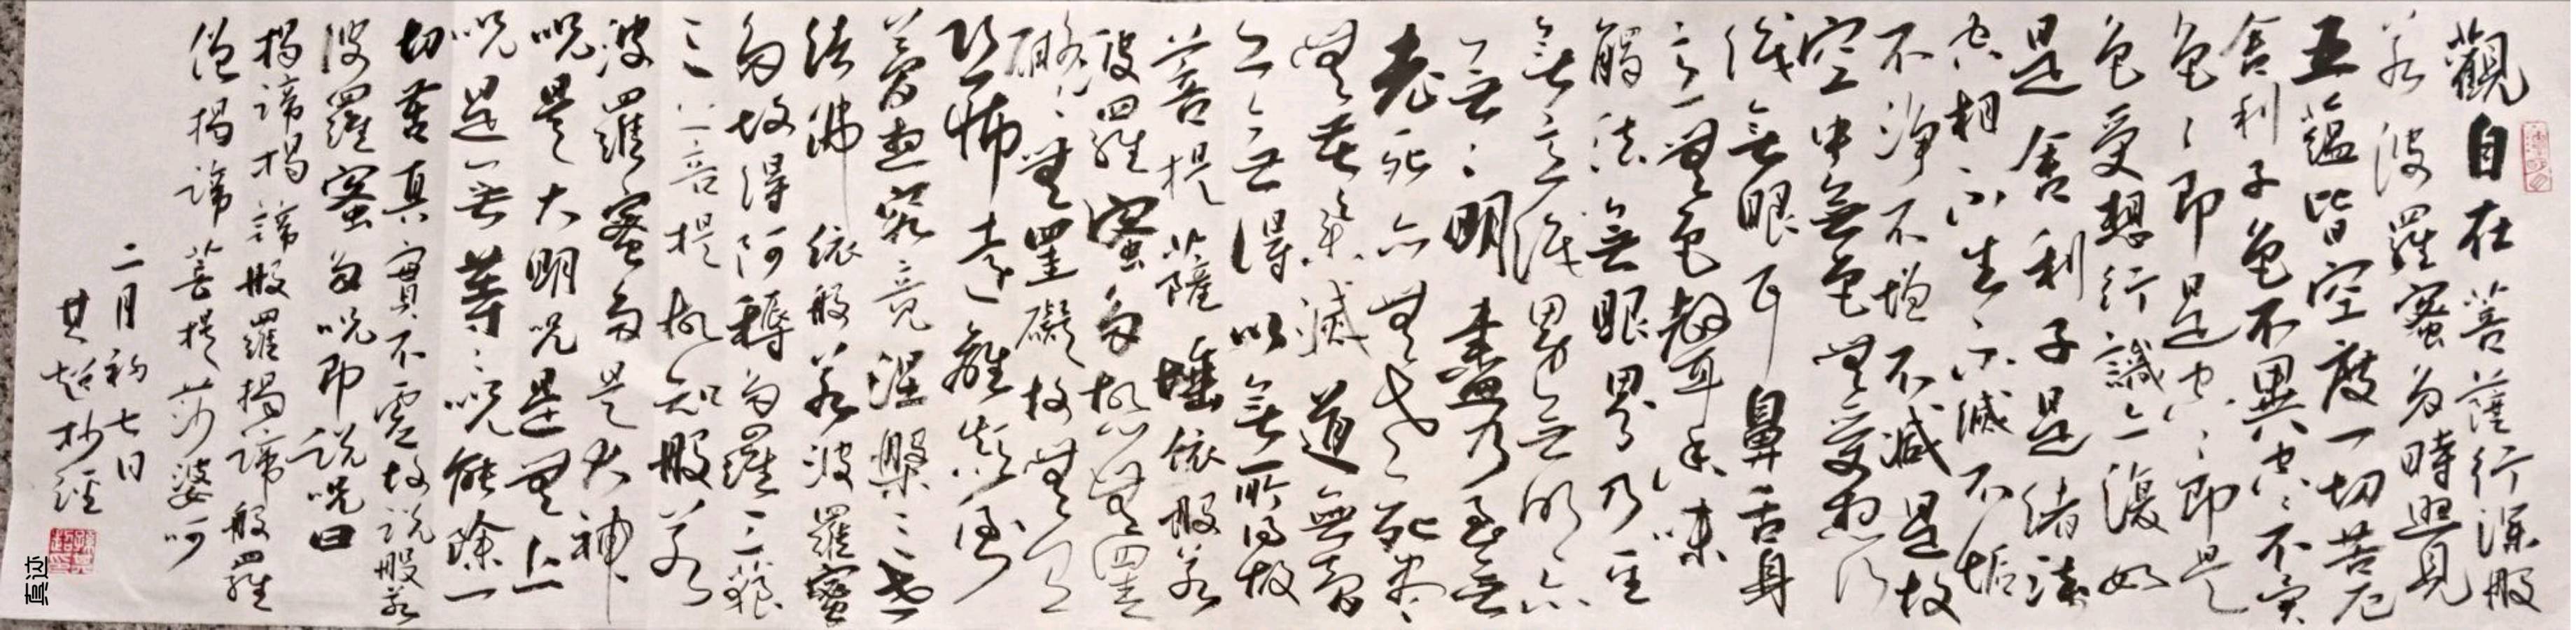 觀自在菩薩行深般
若波羅蜜多時照見
五蘊皆空度一切苦厄
舍利子色不異空空不異
色色即是空空即是
色受想行識亦復如
是舍利子是諸法
空相不生不滅不垢
不淨不增不減是故
空中無色無受想行
識無眼耳鼻舌身
意無色聲香味
觸法無眼界乃至
無意識界無無明亦
無無明盡乃至無
老死亦無老死盡
無苦集滅道無智
亦無得以無所得故
菩提薩埵依般若
波羅蜜多故心無罣
礙無罣礙故無有
恐怖遠離顛倒
夢想究竟涅槃三世
諸佛依般若波羅蜜
多故得阿耨多羅三藐
三菩提故知般若
波羅蜜多是大神
咒是大明咒是無上
咒是無等等咒能除一
切苦真實不虛故說般若
波羅蜜多咒即說咒曰
揭諦揭諦般羅揭諦般羅
僧揭諦菩提莎婆呵
二月初七日
其超抄經
真迹